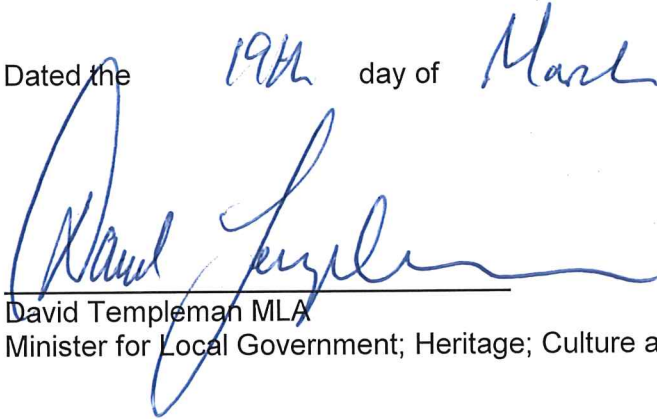 Dated the 19th day of March
David Templeman
David Templeman MLA
Minister for Local Government; Heritage; Culture a